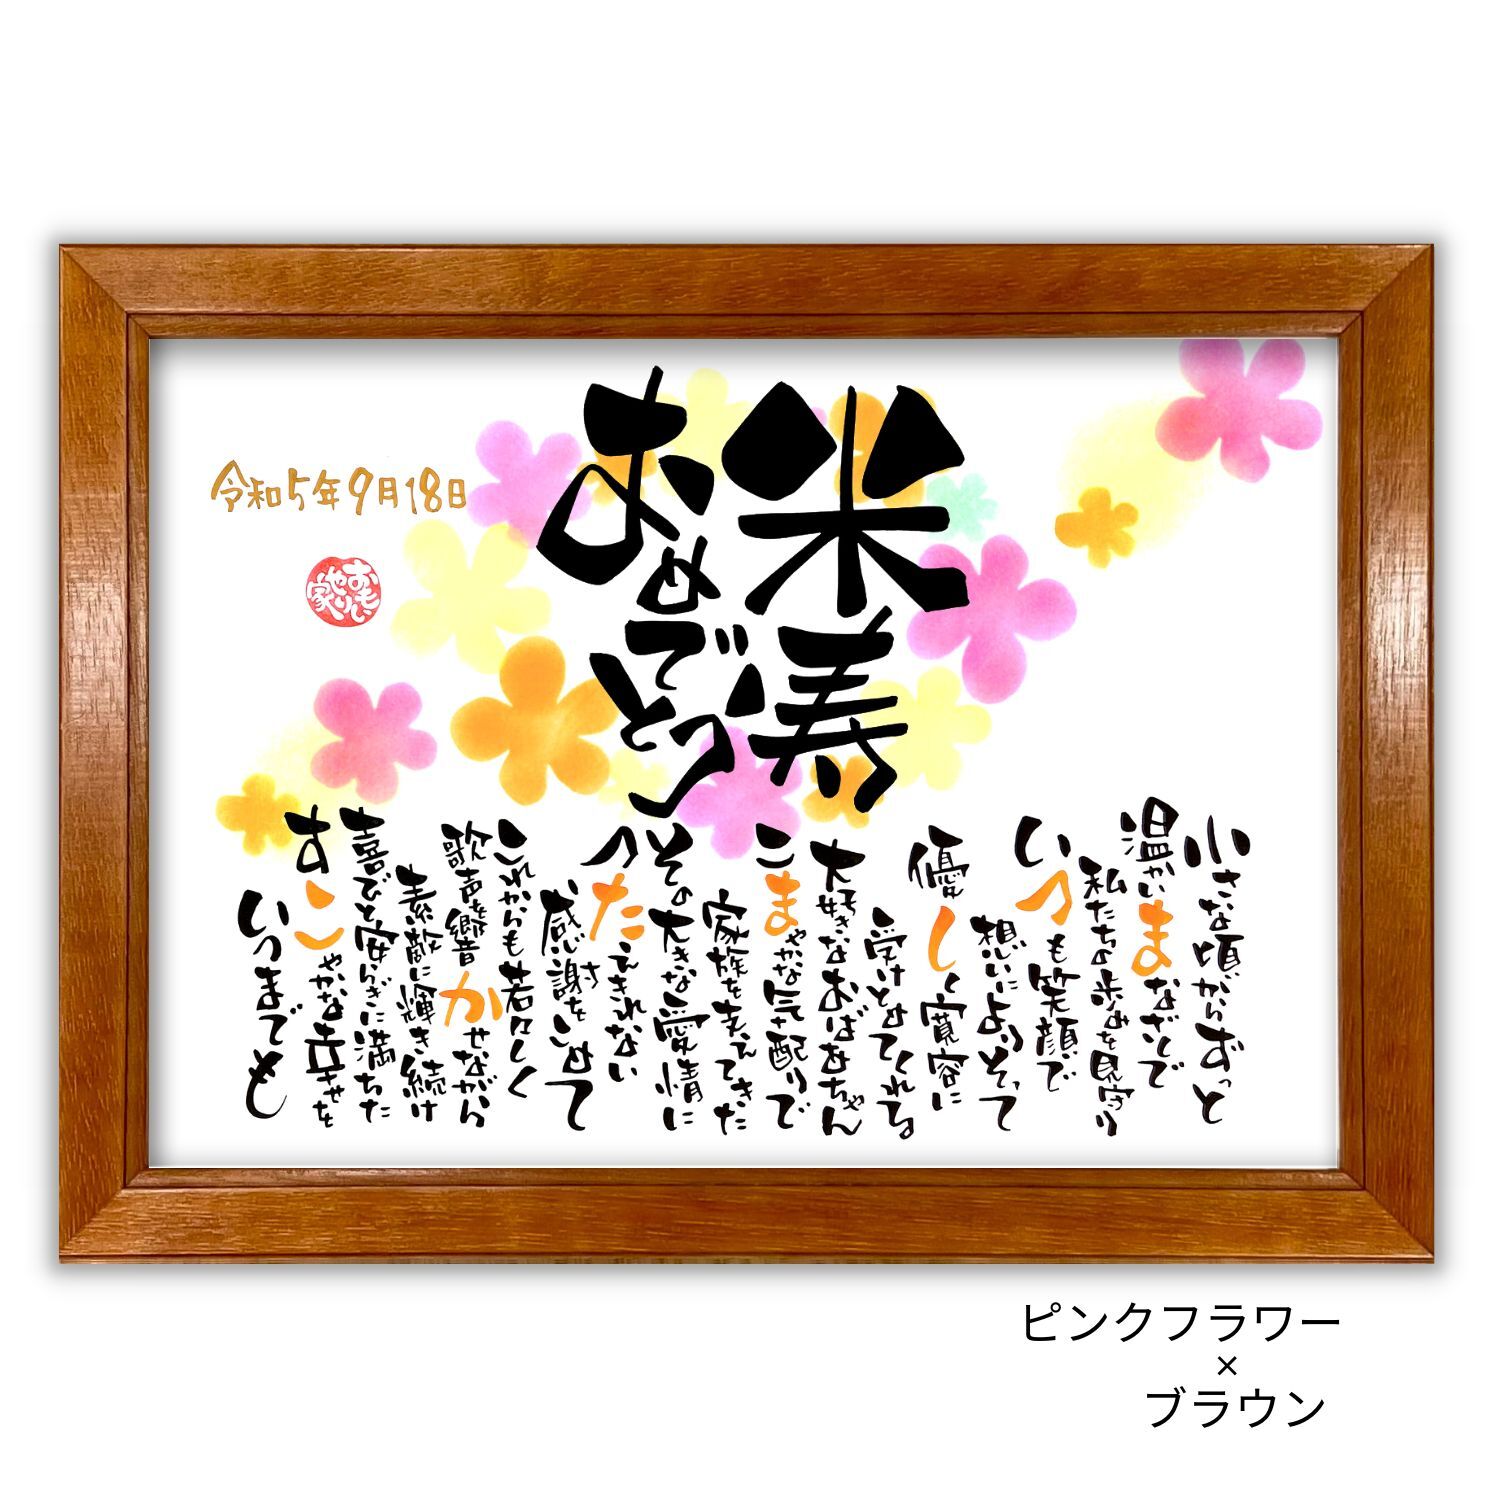 米寿
おめでとう
令和5年9月18日
おもいやり家
小さな頃からずっと
温かいまなざしで
私たちの歩みを見守り
いつも笑顔で
想いによりそって
優しく寛容に
受けとめてくれる
大好きなおばあちゃん
こまやかな気配りで
家族を支えてきた
その大きな愛情に
つたえきれない
感謝をこめて
これからも若々しく
歌声を響かせながら
素敵に輝き続け
喜びと安らぎに満ちた
すこやかな幸せを
いつまでも
ピンクフラワー
×
ブラウン